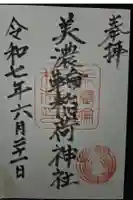 奉拝
美濃輪稲荷神社
令和七年六月二十一日